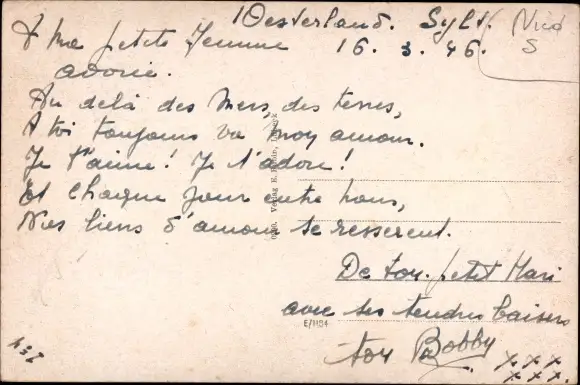 Westerland. Sylt. Nied
S
A Ma petite femme 16. 3. 46.
adorée.
Au delà des Mers, des terres,
A toi toujours va mon amour.
Je t'aime! Je t'adore!
Et chaque jour entre nous,
Nos liens d'amour se resserrent.
De ton petit Mari
avec ses tendres baisers
E/1104
ton Bobby
x x x
x x x.
Verlag E.
134